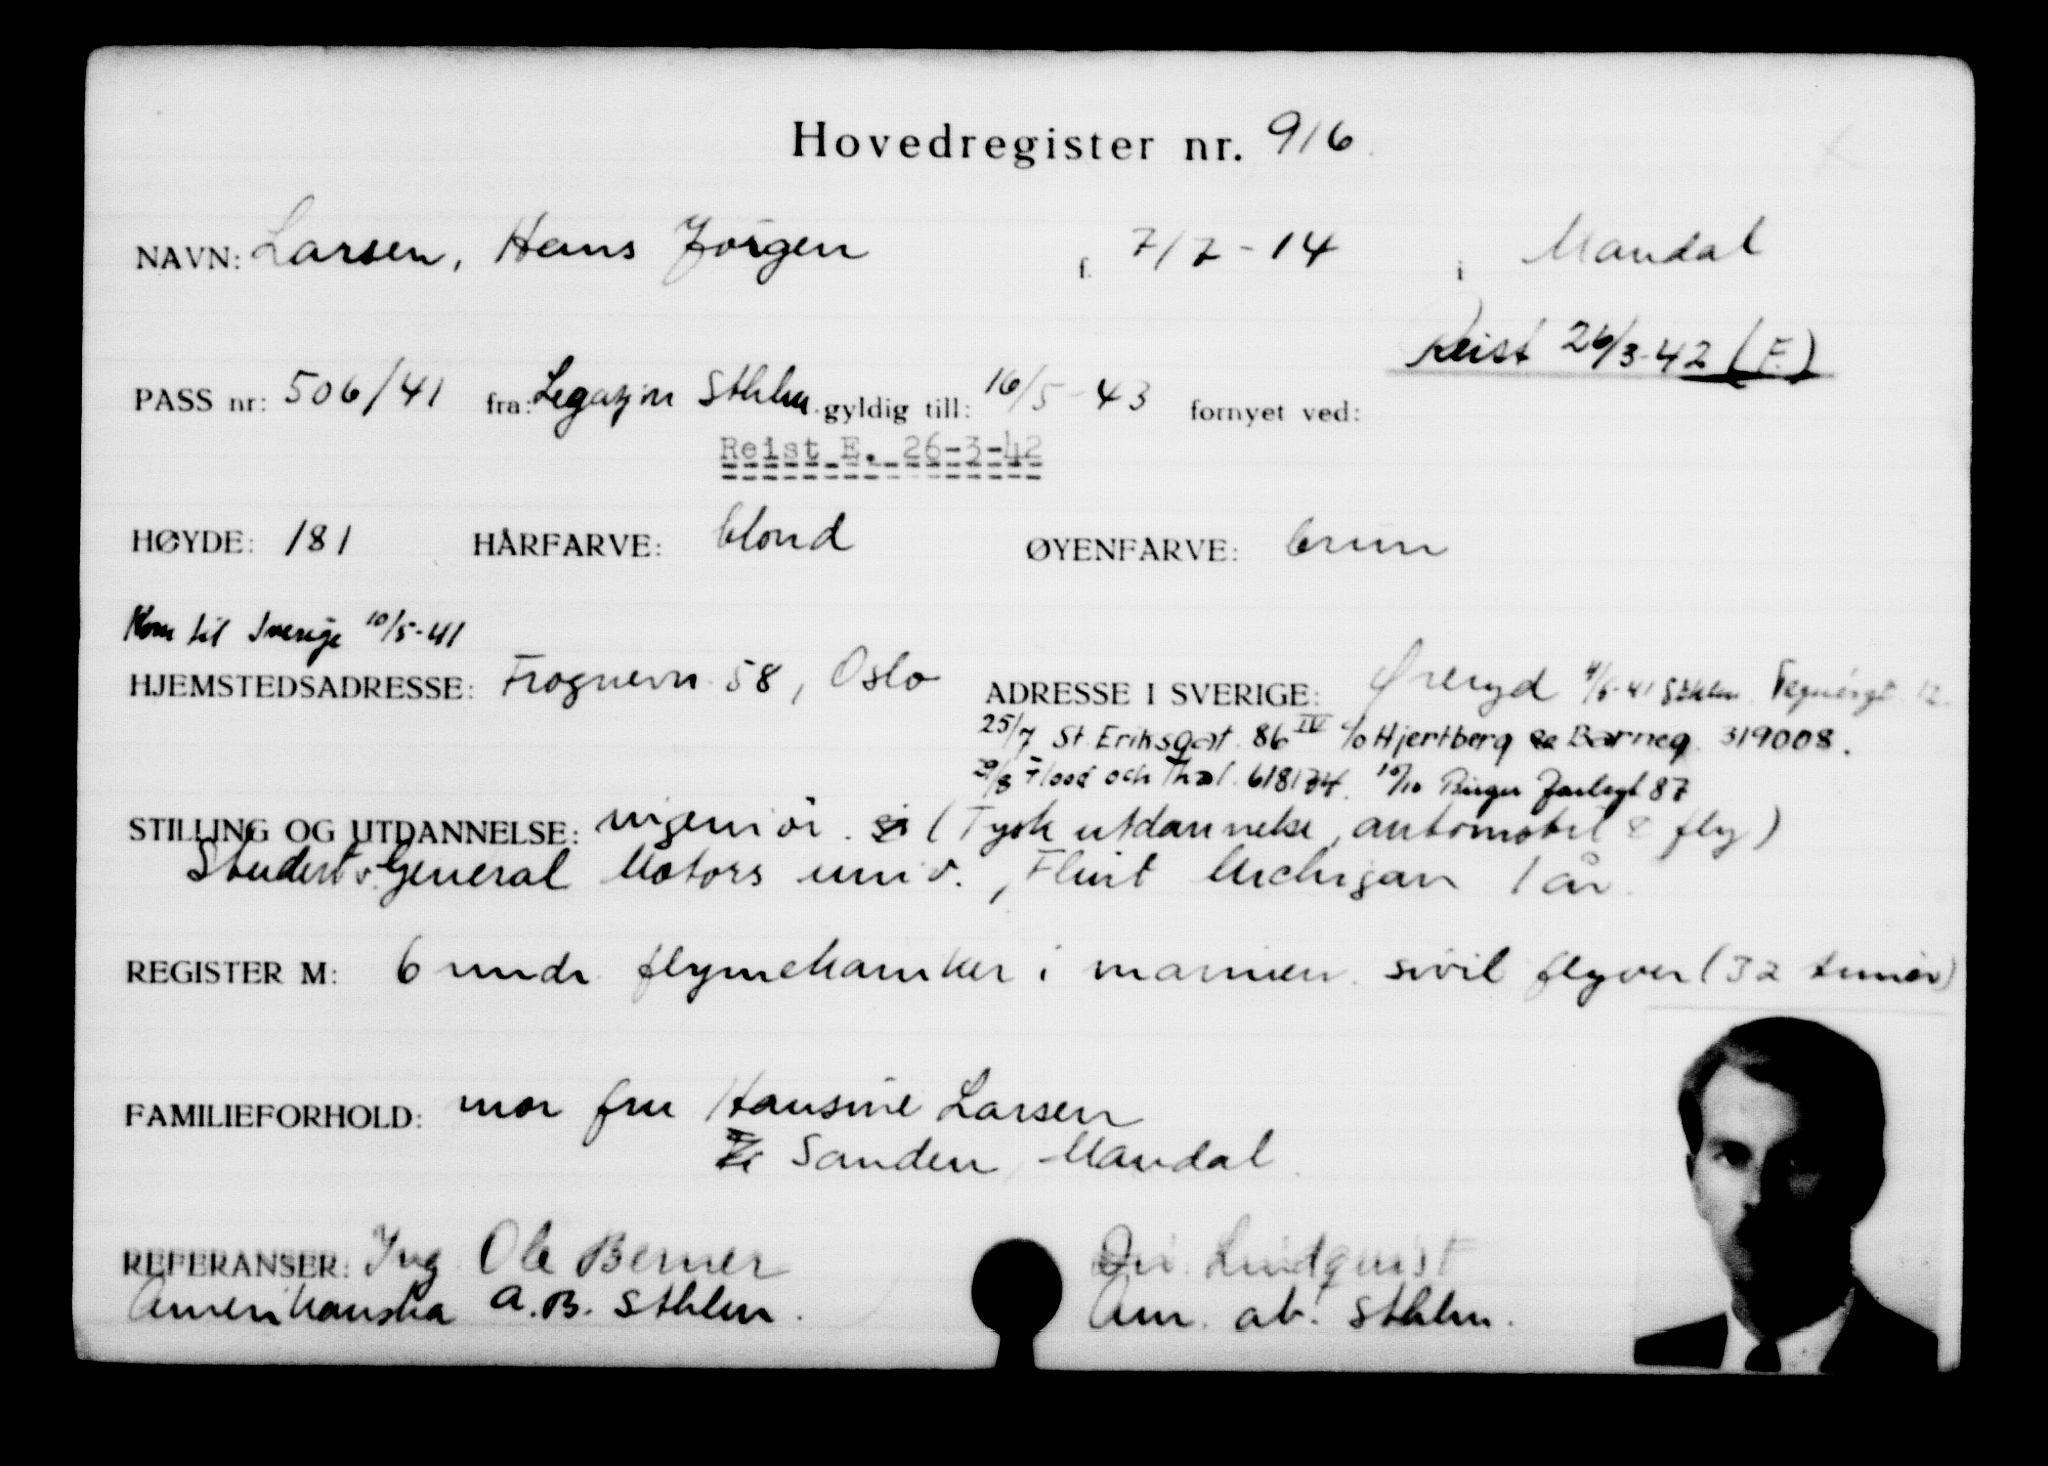 Hovedregister nr. 916
NAVN: Larsen, Hans Jörgen f. 7/7-14 i Mandal
Reist 26/3-42 (F.)
PASS nr: 506/41 fra: Legasjon Sthlm. gyldig till: 16/5-43 fornyet ved:
Reist E. 26-3-42
HØYDE: 181 HÅRFARVE: blond ØYENFARVE: brun
Kom til Sverige 10/5-41
HJEMSTEDSADRESSE: Frognervn. 58, Oslo ADRESSE I SVERIGE: Øreryd Sthlm Tegnérgt. 12.
25/7 St Eriksgat. 86 IV c/o Hjertberg Barneg. 319008.
29/8 Flood och Thal. 618174. 10/10 Birger Jarlsgt 87
STILLING OG UTDANNELSE: ingeniör. (Tysk utdannelse, automobil & fly)
Student v. General Motors univ., Flint Michigan 1 år.
REGISTER M: 6 mndr. flymekaniker i marinen. sivil flyver (32 timer)
FAMILIEFORHOLD: mor fru Hansine Larsen
Sanden, Mandal
REFERANSER: Ing. Ole Berner Dir. Lindquist
Amerikanska A.B. Sthlm. Am. ab. Sthlm.